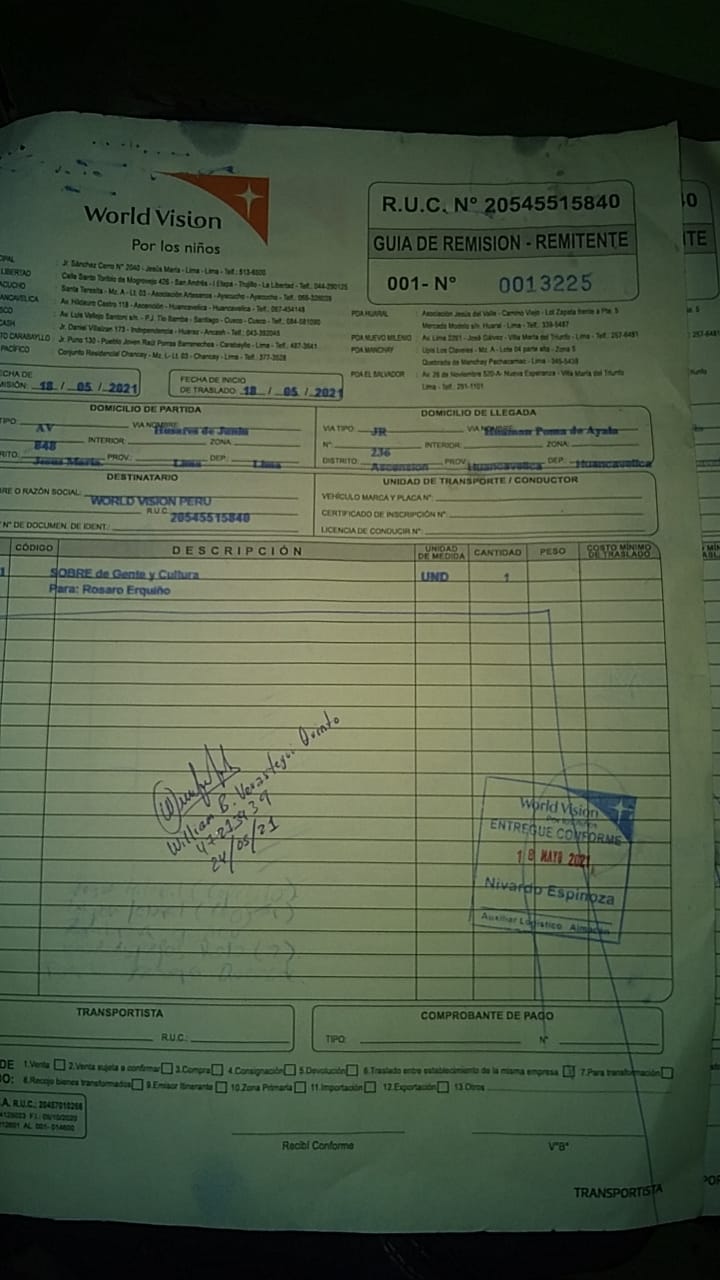 World Vision
Por los niños
R.U.C. N° 20545515840
GUIA DE REMISION - REMITENTE
001- N° 0013225
Jr. Sánchez Cerro N° 2040 - Jesús María - Lima - Lima - Telf.: 513-6500
LIBERTAD Calle Santo Toribio de Mogrovejo 426 - San Andrés - I Etapa - Trujillo - La Libertad - Telf.: 044-290125
Santa Teresita - Mz. A - Lt. 03 - Asociación Artesanos - Ayacucho - Ayacucho - Telf.:
Av. Hildauro Castro 118 - Ascención - Huancavelica - Huancavelica - Telf.: 067-454148
Av. Luis Vallejo Santoni s/n. - P.J. Tio Bamba - Santiago - Cusco - Cusco - Telf.:
Jr. Daniel Villaizan 173 - Independencia - Huaraz - Ancash - Telf.:
CARABAYLLO Jr. Puno 130 - Pueblo Joven Raúl Porras Barrenechea - Carabayllo - Lima - Telf.: 487-3641
PACÍFICO Conjunto Residencial Chancay - Mz. L- Lt. 03 - Chancay - Lima - Telf.: 377-3528
PDA HUARAL Asociación Jesús del Valle - Camino Viejo - Lot Zapata frente a Pte. 5
Mercado Modelo s/n. Huaral - Lima - Telf.: 339-5487
PDA NUEVO MILENIO Av. Lima 2201 - José Gálvez - Villa María del Triunfo - Lima - Telf.: 257-6481
PDA MANCHAY Upis Los Claveles - Mz. A - Lote 04 parte alta - Zona 5
Quebrada de Manchay Pachacamac - Lima - 345-5438
PDA EL SALVADOR Av. 26 de Noviembre 520-A- Nueva Esperanza - Villa María del Triunfo
Lima - Telf.: 291-1101
18 / 05 / 2021
FECHA DE INICIO
DE TRASLADO: 18 / 05 / 2021
DOMICILIO DE PARTIDA
AV VIA NOMBRE: Husares de Junin
848 INTERIOR: ZONA:
Jesus Maria PROV.: Lima DEP.: Lima
DOMICILIO DE LLEGADA
VIA TIPO: JR VIA NOMBRE: Huaman Poma de Ayala
N°: 236 INTERIOR: ZONA:
DISTRITO: Ascension PROV.: Huancavelica DEP.: Huancavelica
DESTINATARIO
O RAZÓN SOCIAL: WORLD VISION PERU
R.U.C. 20545515840
N° DE DOCUMEN. DE IDENT.:
UNIDAD DE TRANSPORTE / CONDUCTOR
VEHÍCULO MARCA Y PLACA N°:
CERTIFICADO DE INSCRIPCIÓN N°:
LICENCIA DE CONDUCIR N°:
CÓDIGO DESCRIPCIÓN UNIDAD DE MEDIDA CANTIDAD PESO COSTO MÍNIMO DE TRASLADO
1 SOBRE de Gente y Cultura UND 1
Para: Rosaro Erquiño
William B. Verastegui Quinto
47213939
24/05/21
World Vision
Por los niños
ENTREGUE CONFORME
18 MAYO 2021
Nivardo Espinoza
Auxiliar Logístico Almacén
TRANSPORTISTA
R.U.C.:
COMPROBANTE DE PAGO
TIPO: N°
DE 1.Venta 2.Venta sujeta a confirmar 3.Compra 4.Consignación 5.Devolución 6.Traslado entre establecimiento de la misma empresa 7.Para transformación
8.Recojo bienes transformados 9.Emisor Itinerante 10.Zona Primaria 11.Importación 12.Exportación 13.Otros
R.U.C.: 20457010266
AL 001-014600
Recibí Conforme
V°B°
TRANSPORTISTA